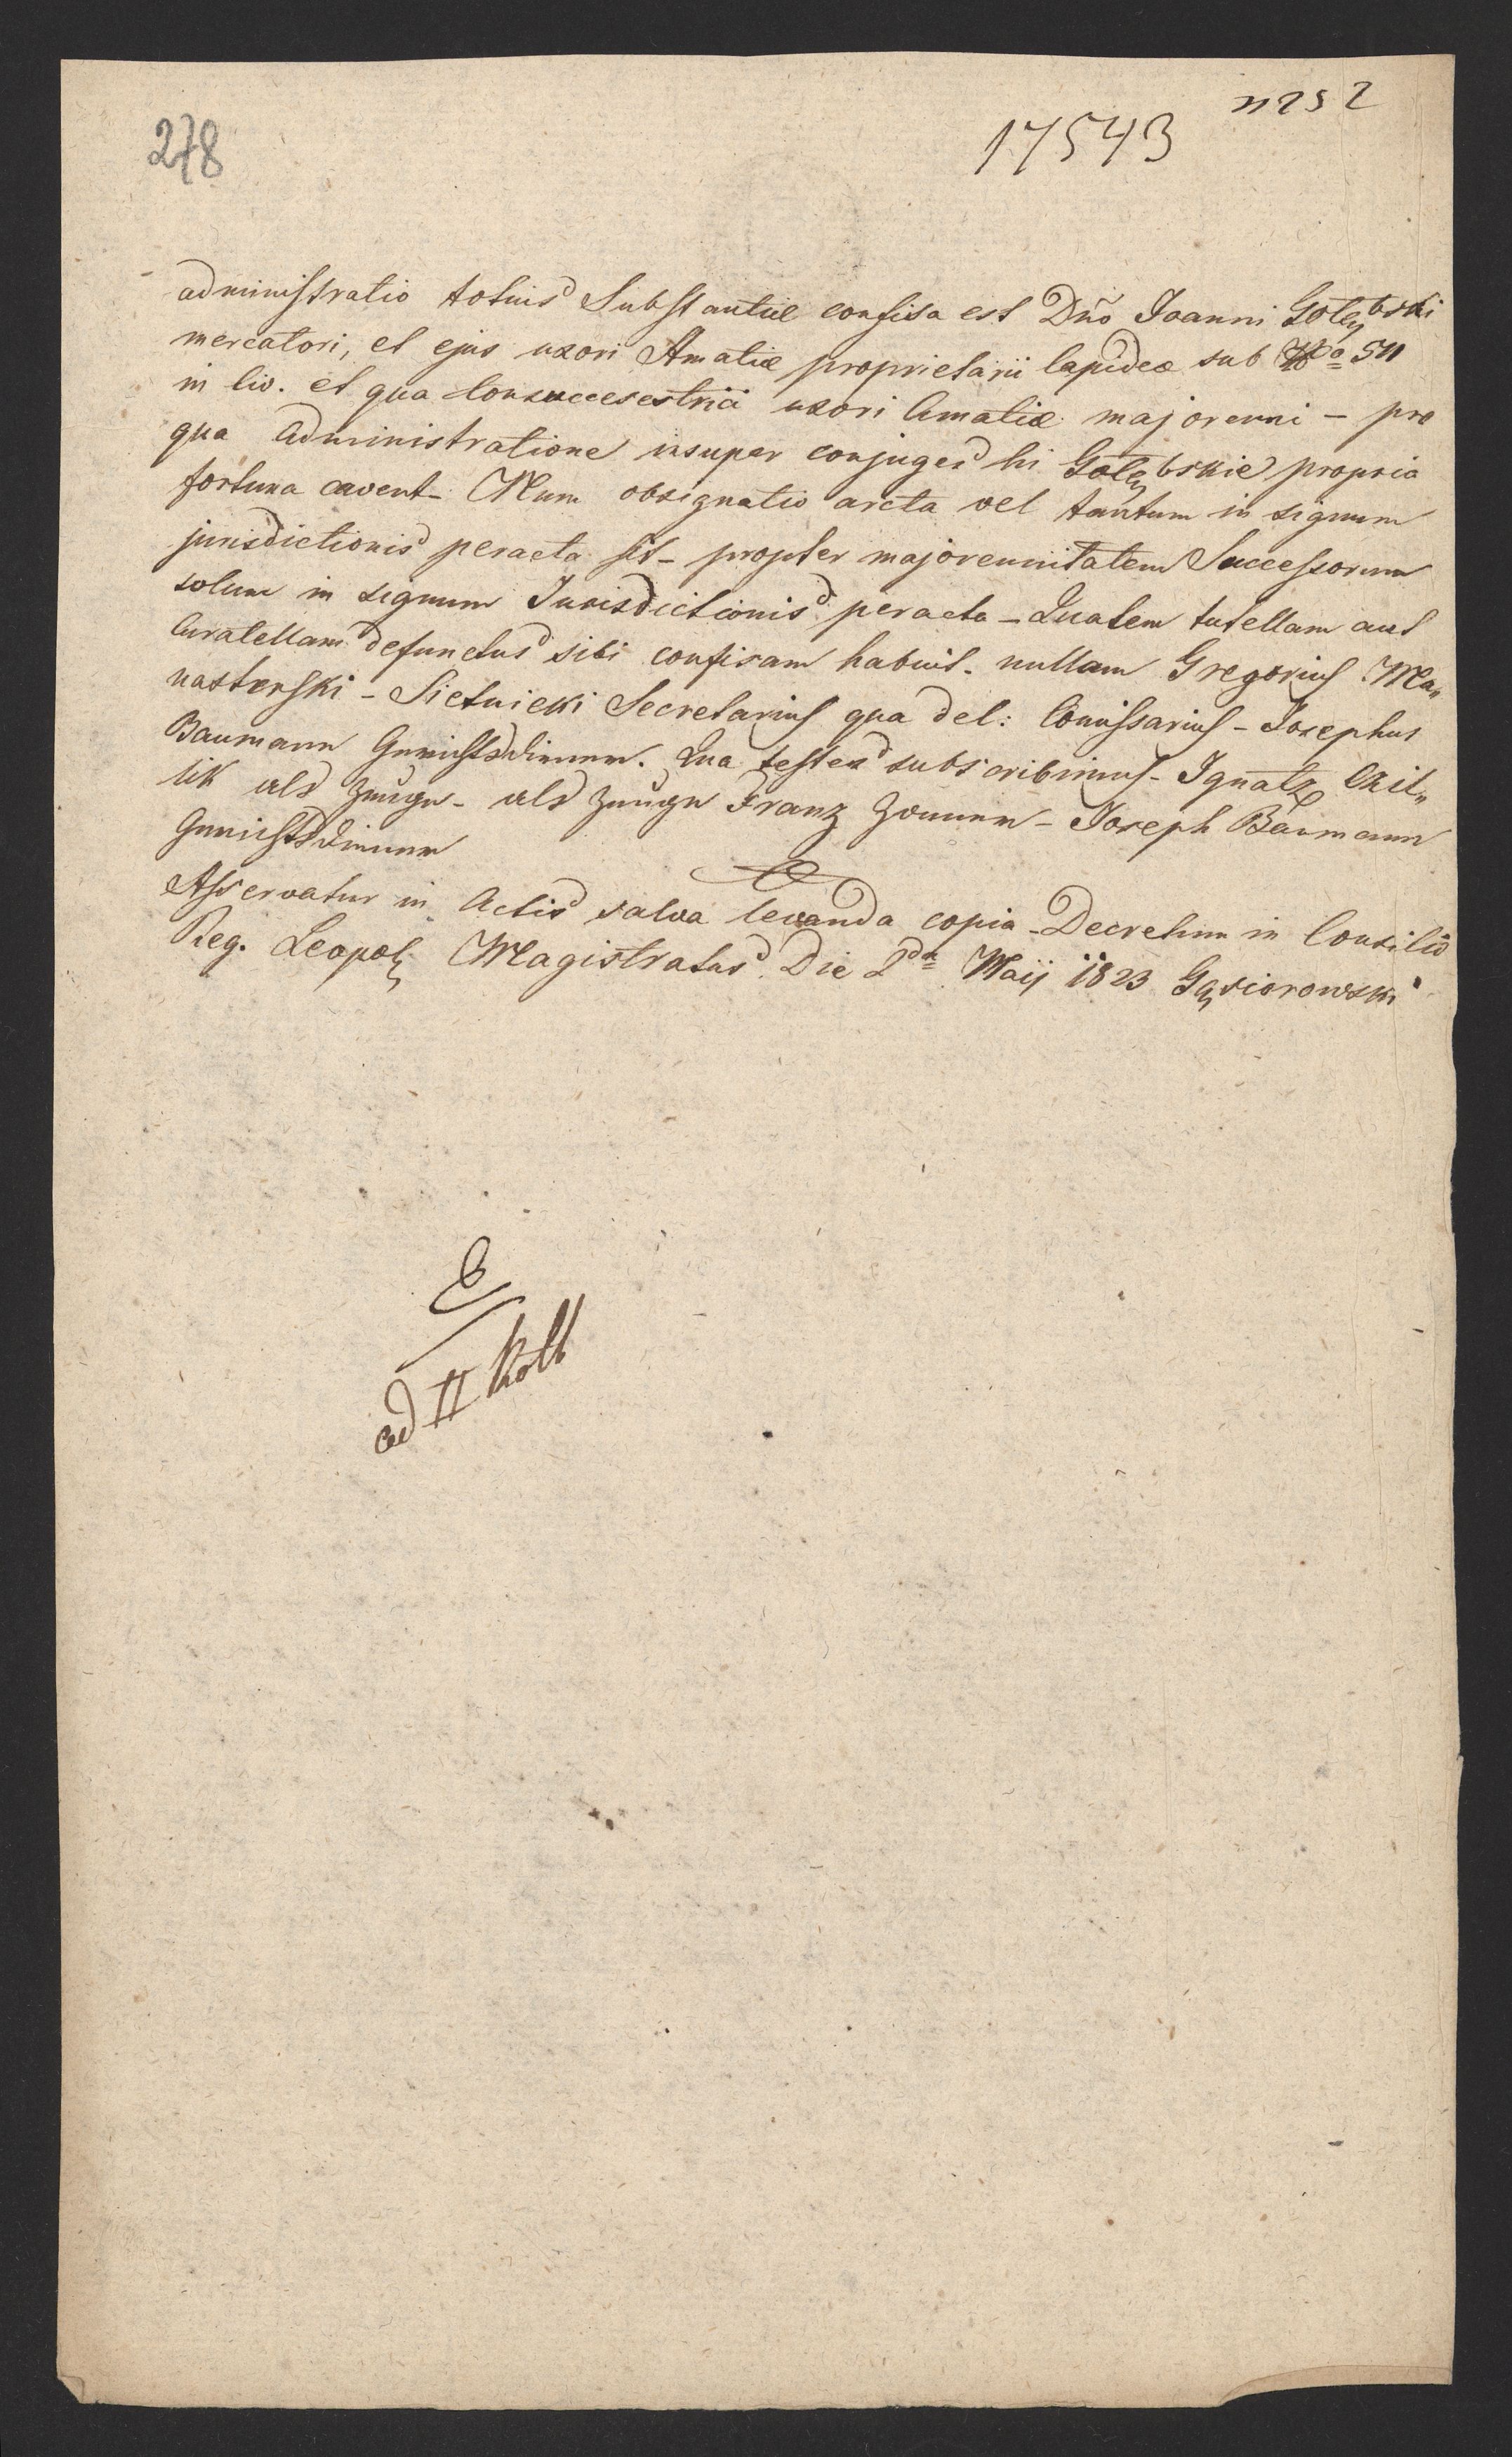 278
17543
n252
administratio totius Substantiæ confisa est Dño Joanni Gołębski
mercatori, et ejus uxori Amaliæ proprietarii lapideæ sub Nro 511
in Civ. et qua Consuccesestrici uxori Amaliæ majorenni - pro
qua administratione insuper conjuges hi Gołębskie propria
fortuna cavent - Num obsignatio arcta vel tantum in signum
jurisdictionis peracta sit - propter majorennitatem Successorum
solum in signum Jurisdictionis peracta - Qualem tutellam aut
Curatellam defunctus sibi confisam habuit - nullam Gregorius Mo„
nasterski - Sietnicki Secretarius qua del: Comissarius - Josephus
Baumann Gerichtsdiener. Qua testes subscribimus - Ignatz
lik als Zeuge - als Zeuge Franz - Joseph Baumann
Gerichtsdiener
Asservatur in Actis salva levanda copia - Decretum in Consilio
Reg. Leopol. Magistratus Die 2da Maij 1823 Gąsiorowski
E
ad II Kolb